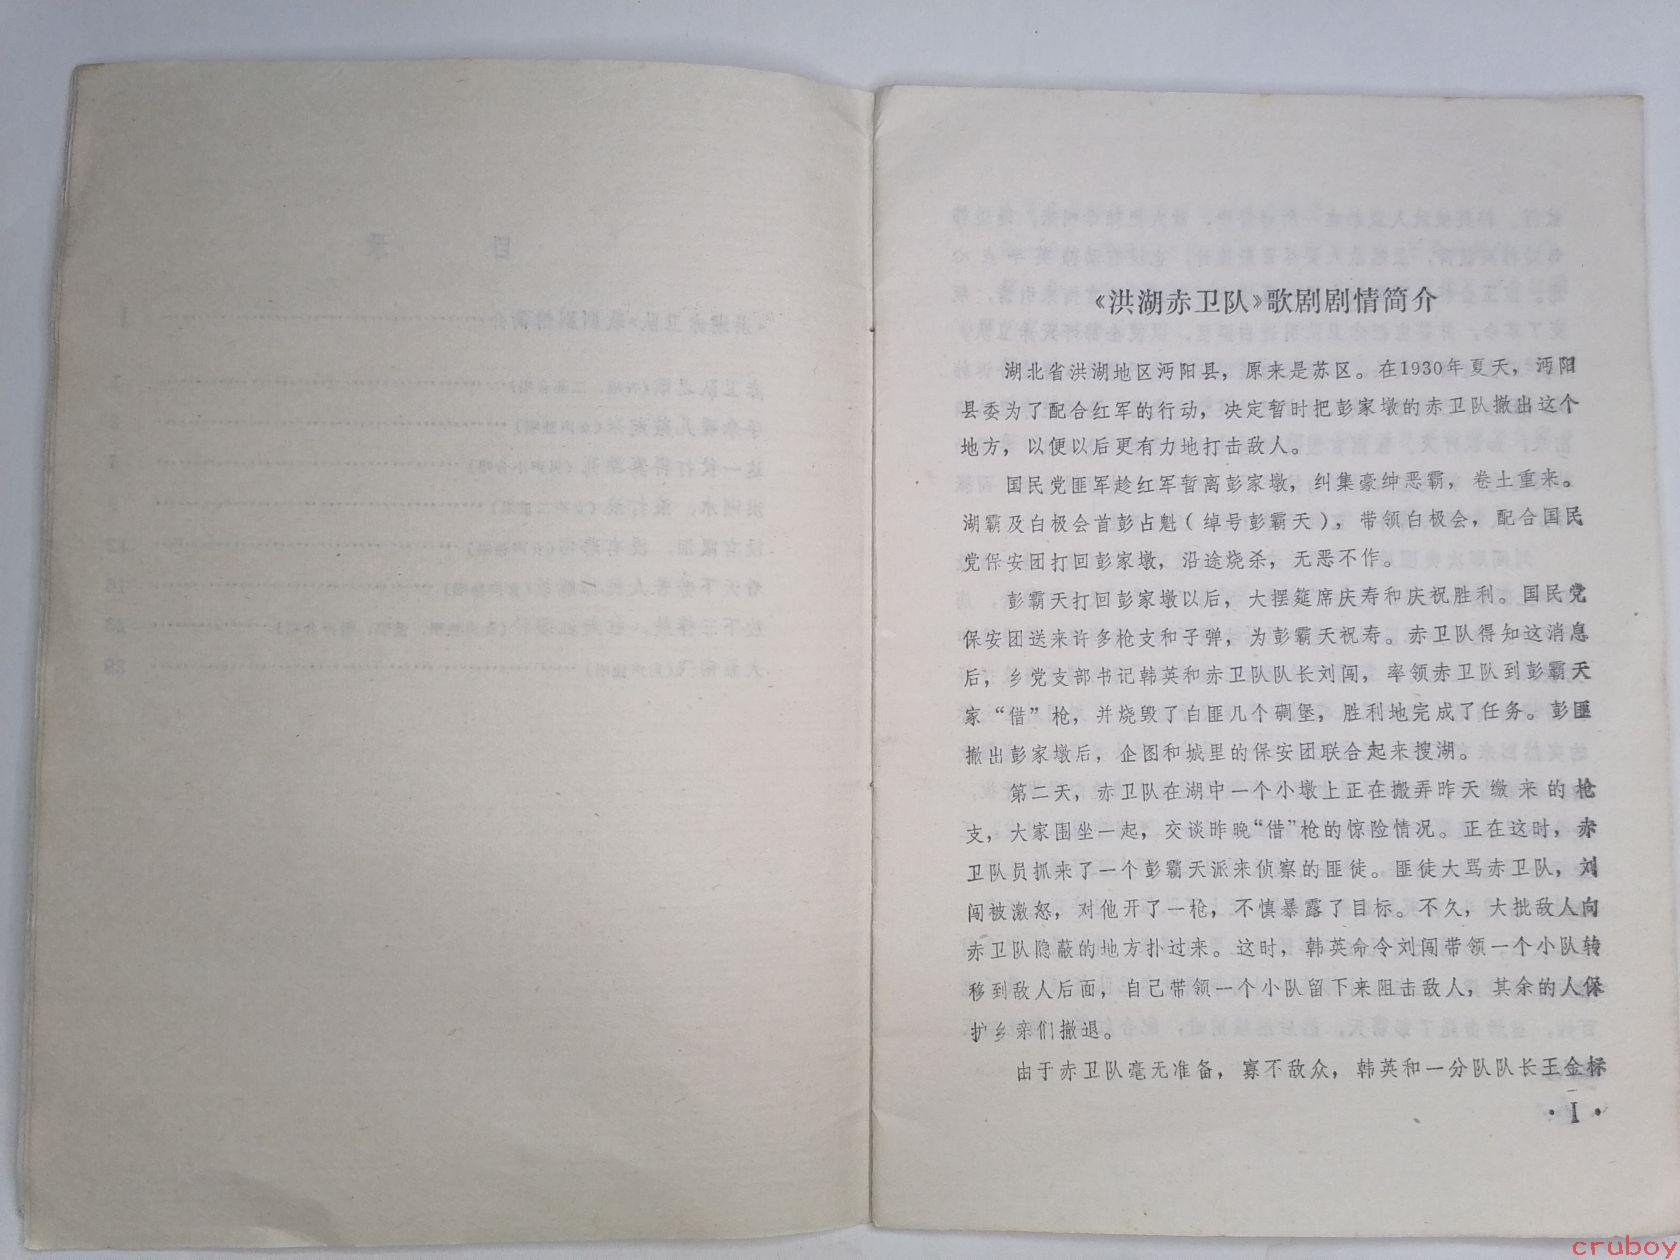 《洪湖赤卫队》歌剧剧情简介
湖北省洪湖地区沔阳县，原来是苏区。在1930年夏天，沔阳
县委为了配合红军的行动，决定暂时把彭家墩的赤卫队撤出这个
地方，以便以后更有力地打击敌人。
国民党匪军趁红军暂离彭家墩，纠集豪绅恶霸，卷土重来。
湖霸及白极会首彭占魁（绰号彭霸天），带领白极会，配合国民
党保安团打回彭家墩，沿途烧杀，无恶不作。
彭霸天打回彭家墩以后，大摆筵席庆寿和庆祝胜利。国民党
保安团送来许多枪支和子弹，为彭霸天祝寿。赤卫队得知这消息
后，乡党支部书记韩英和赤卫队队长刘闯，率领赤卫队到彭霸天
家“借”枪，并烧毁了白匪几个碉堡，胜利地完成了任务。彭匪
撤出彭家墩后，企图和城里的保安团联合起来搜湖。
第二天，赤卫队在湖中一个小墩上正在搬弄昨天缴来的枪
支，大家围坐一起，交谈昨晚“借”枪的惊险情况。正在这时，赤
卫队员抓来了一个彭霸天派来侦察的匪徒。匪徒大骂赤卫队，刘
闯被激怒，对他开了一枪，不慎暴露了目标。不久，大批敌人向
赤卫队隐蔽的地方扑过来。这时，韩英命令刘闯带领一个小队转
移到敌人后面，自己带领一个小队留下来阻击敌人，其余的人保
护乡亲们撤退。
由于赤卫队毫无准备，寡不敌众，韩英和一分队队长王金标
·I·
cruboy